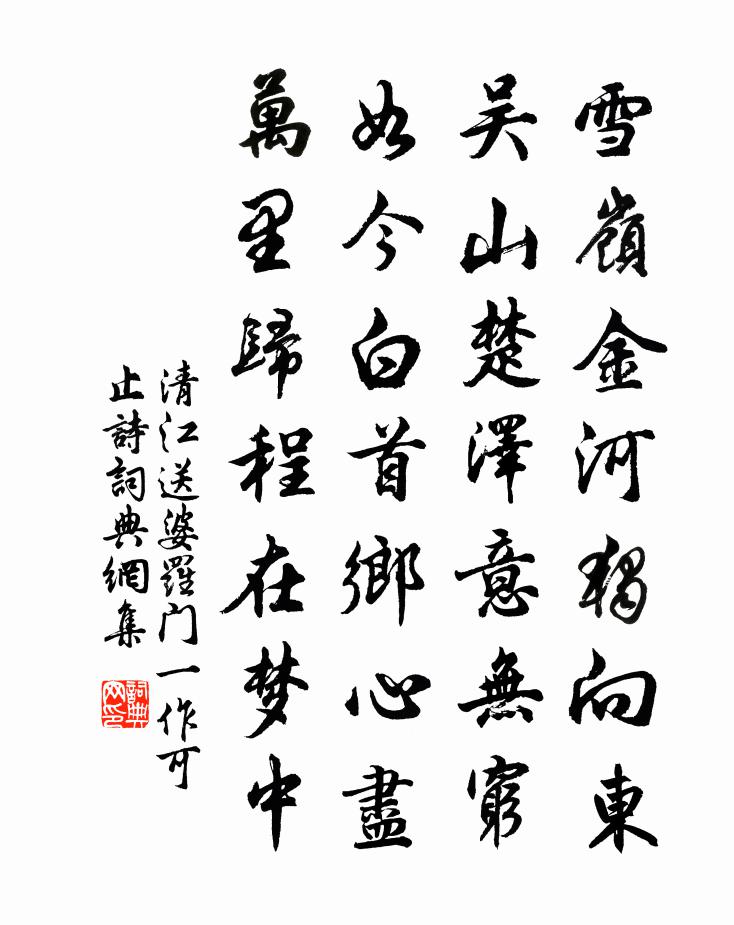 雪嶺金河獨向東
吳山楚澤意無窮
如今白首鄉心盡
萬里歸程在夢中
清江送婆羅门一作可
止詩詞典網集
詞典
网印